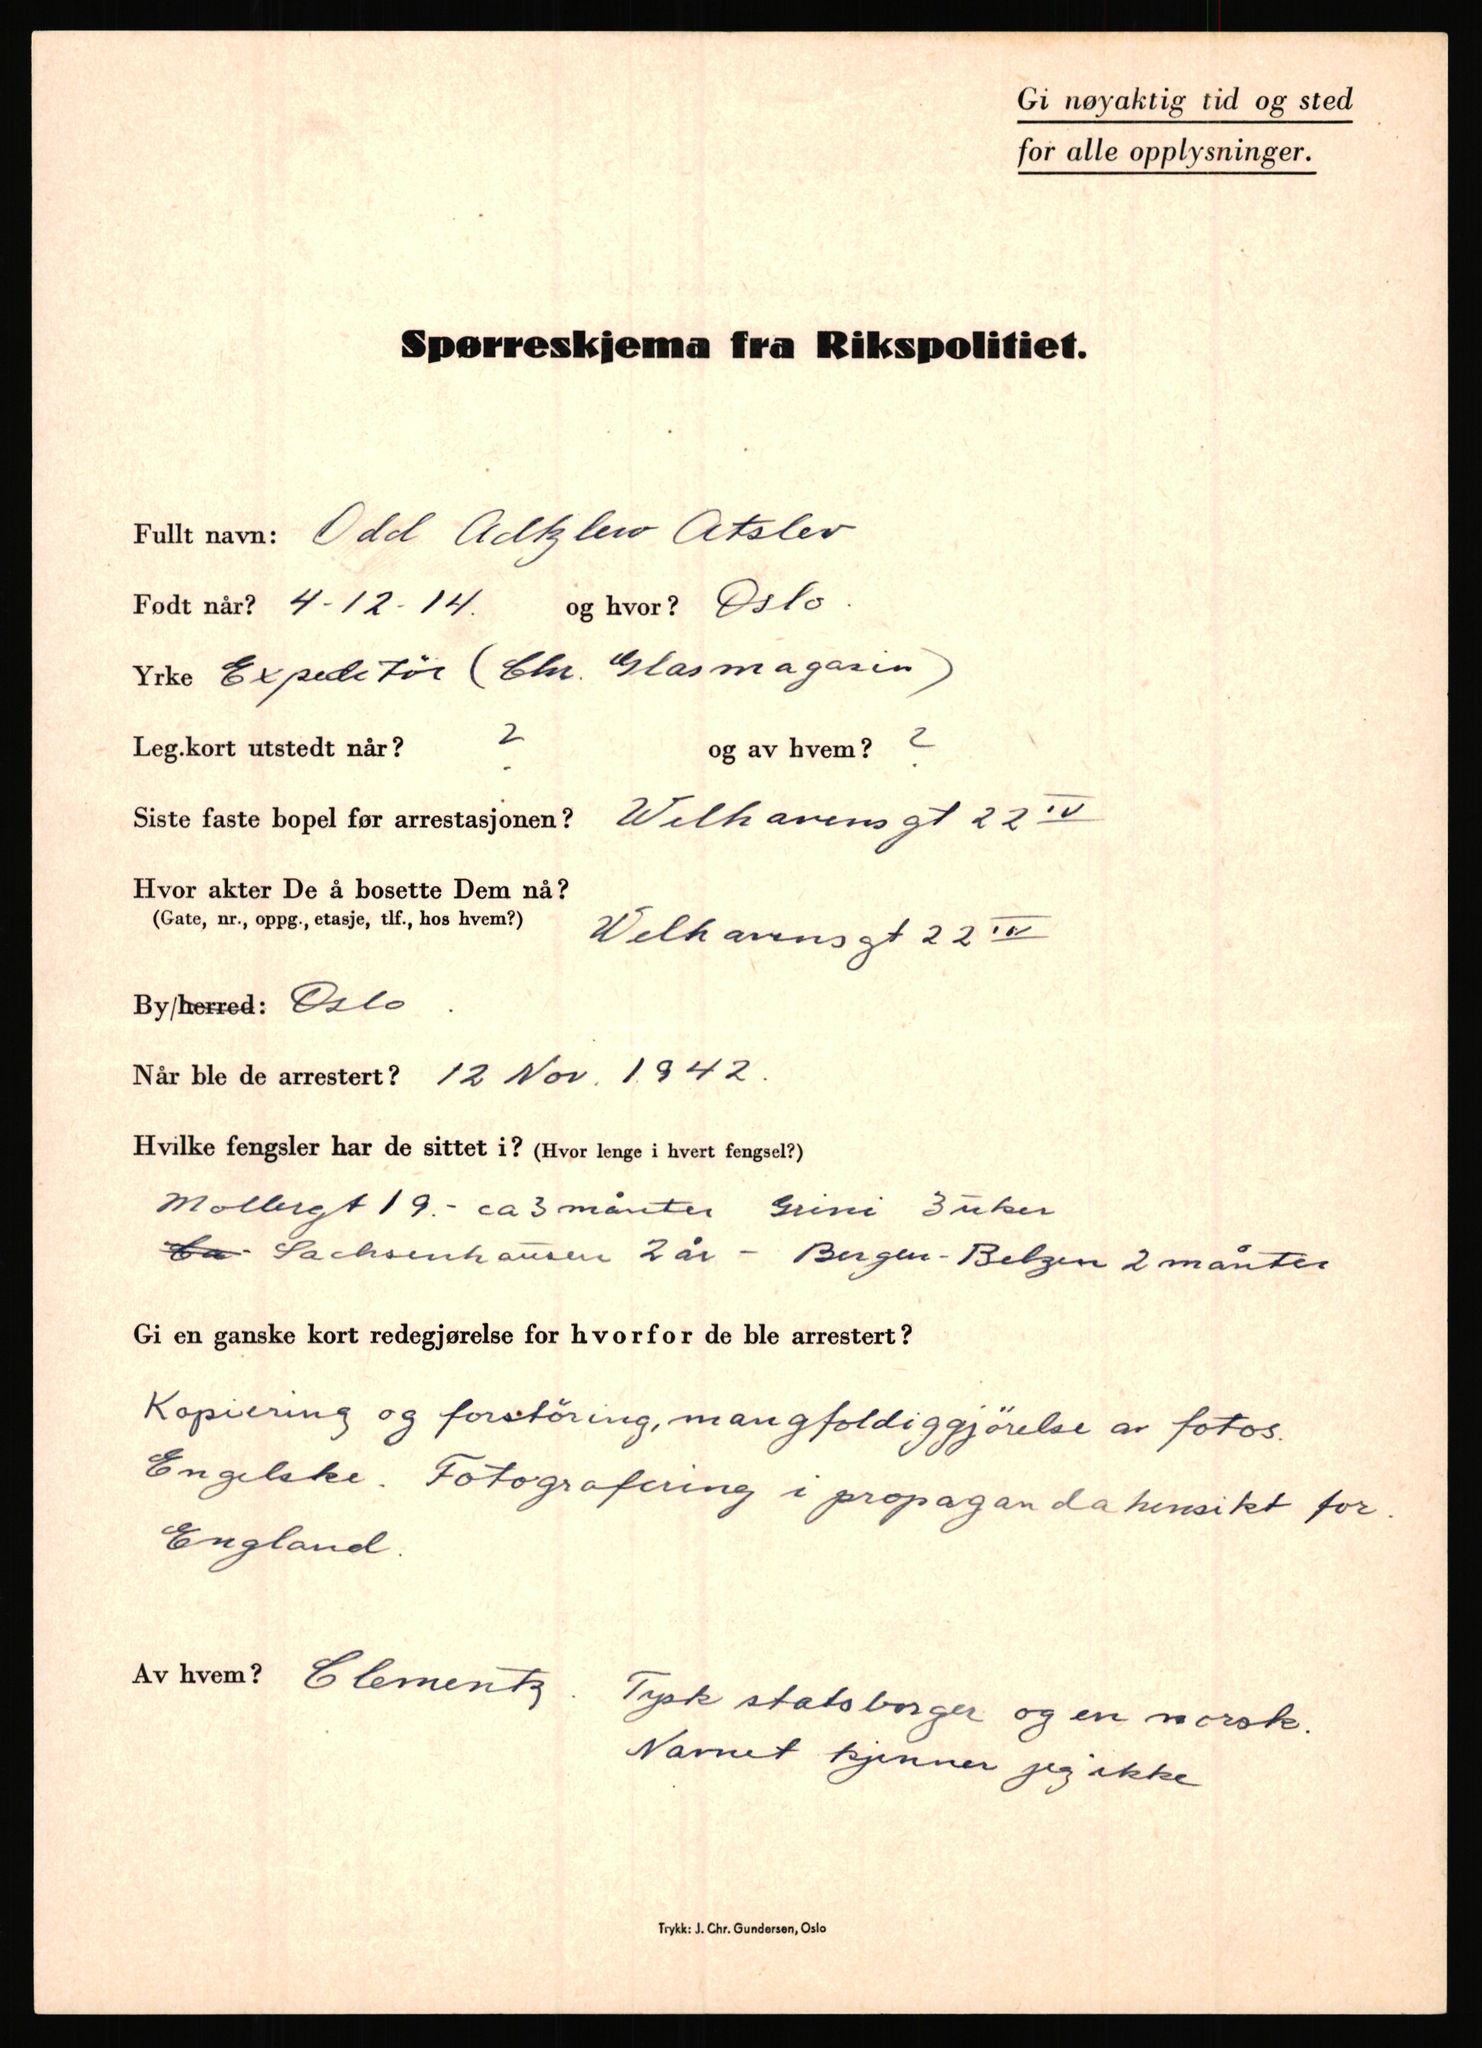 Gi nøyaktig tid og sted
for alle opplysninger.
Spørreskjema fra Rikspolitiet.
Fullt navn: Odd Adtzlew Atslev
Født når? 4-12-14. og hvor? Oslo.
Yrke Expeditör (Chr. Glasmagasin)
Leg.kort utstedt når? ? og av hvem? ?
Siste faste bopel før arrestasjonen? Welhavensgt 22 IV
Hvor akter De å bosette Dem nå?
(Gate, nr., oppg., etasje, tlf., hos hvem?) Welhavensgt 22 IV
By/herred: Oslo.
Når ble de arrestert? 12 Nov. 1942.
Hvilke fengsler har de sittet i? (Hvor lenge i hvert fengsel?)
Mollergt 19.- ca 3 månter Grini 3 uker
Ca Sachsenhausen 2 år - Bergen-Belzen 2 månter
Gi en ganske kort redegjørelse for hvorfor de ble arrestert?
Kopiering og forstöring, mangfoldiggjörelse av fotos.
Engelske. Fotografering i propaganda hensikt for.
England.
Av hvem? Clementz. Tysk statsborger og en norsk.
Navnet kjenner jeg ikke
Trykk: J. Chr. Gundersen, Oslo